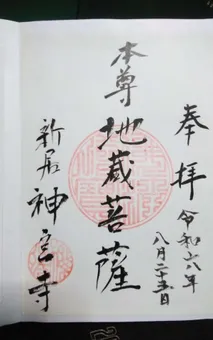 奉拝
令和六年
八月二十五日
本尊
地蔵菩薩
新居
神宮寺